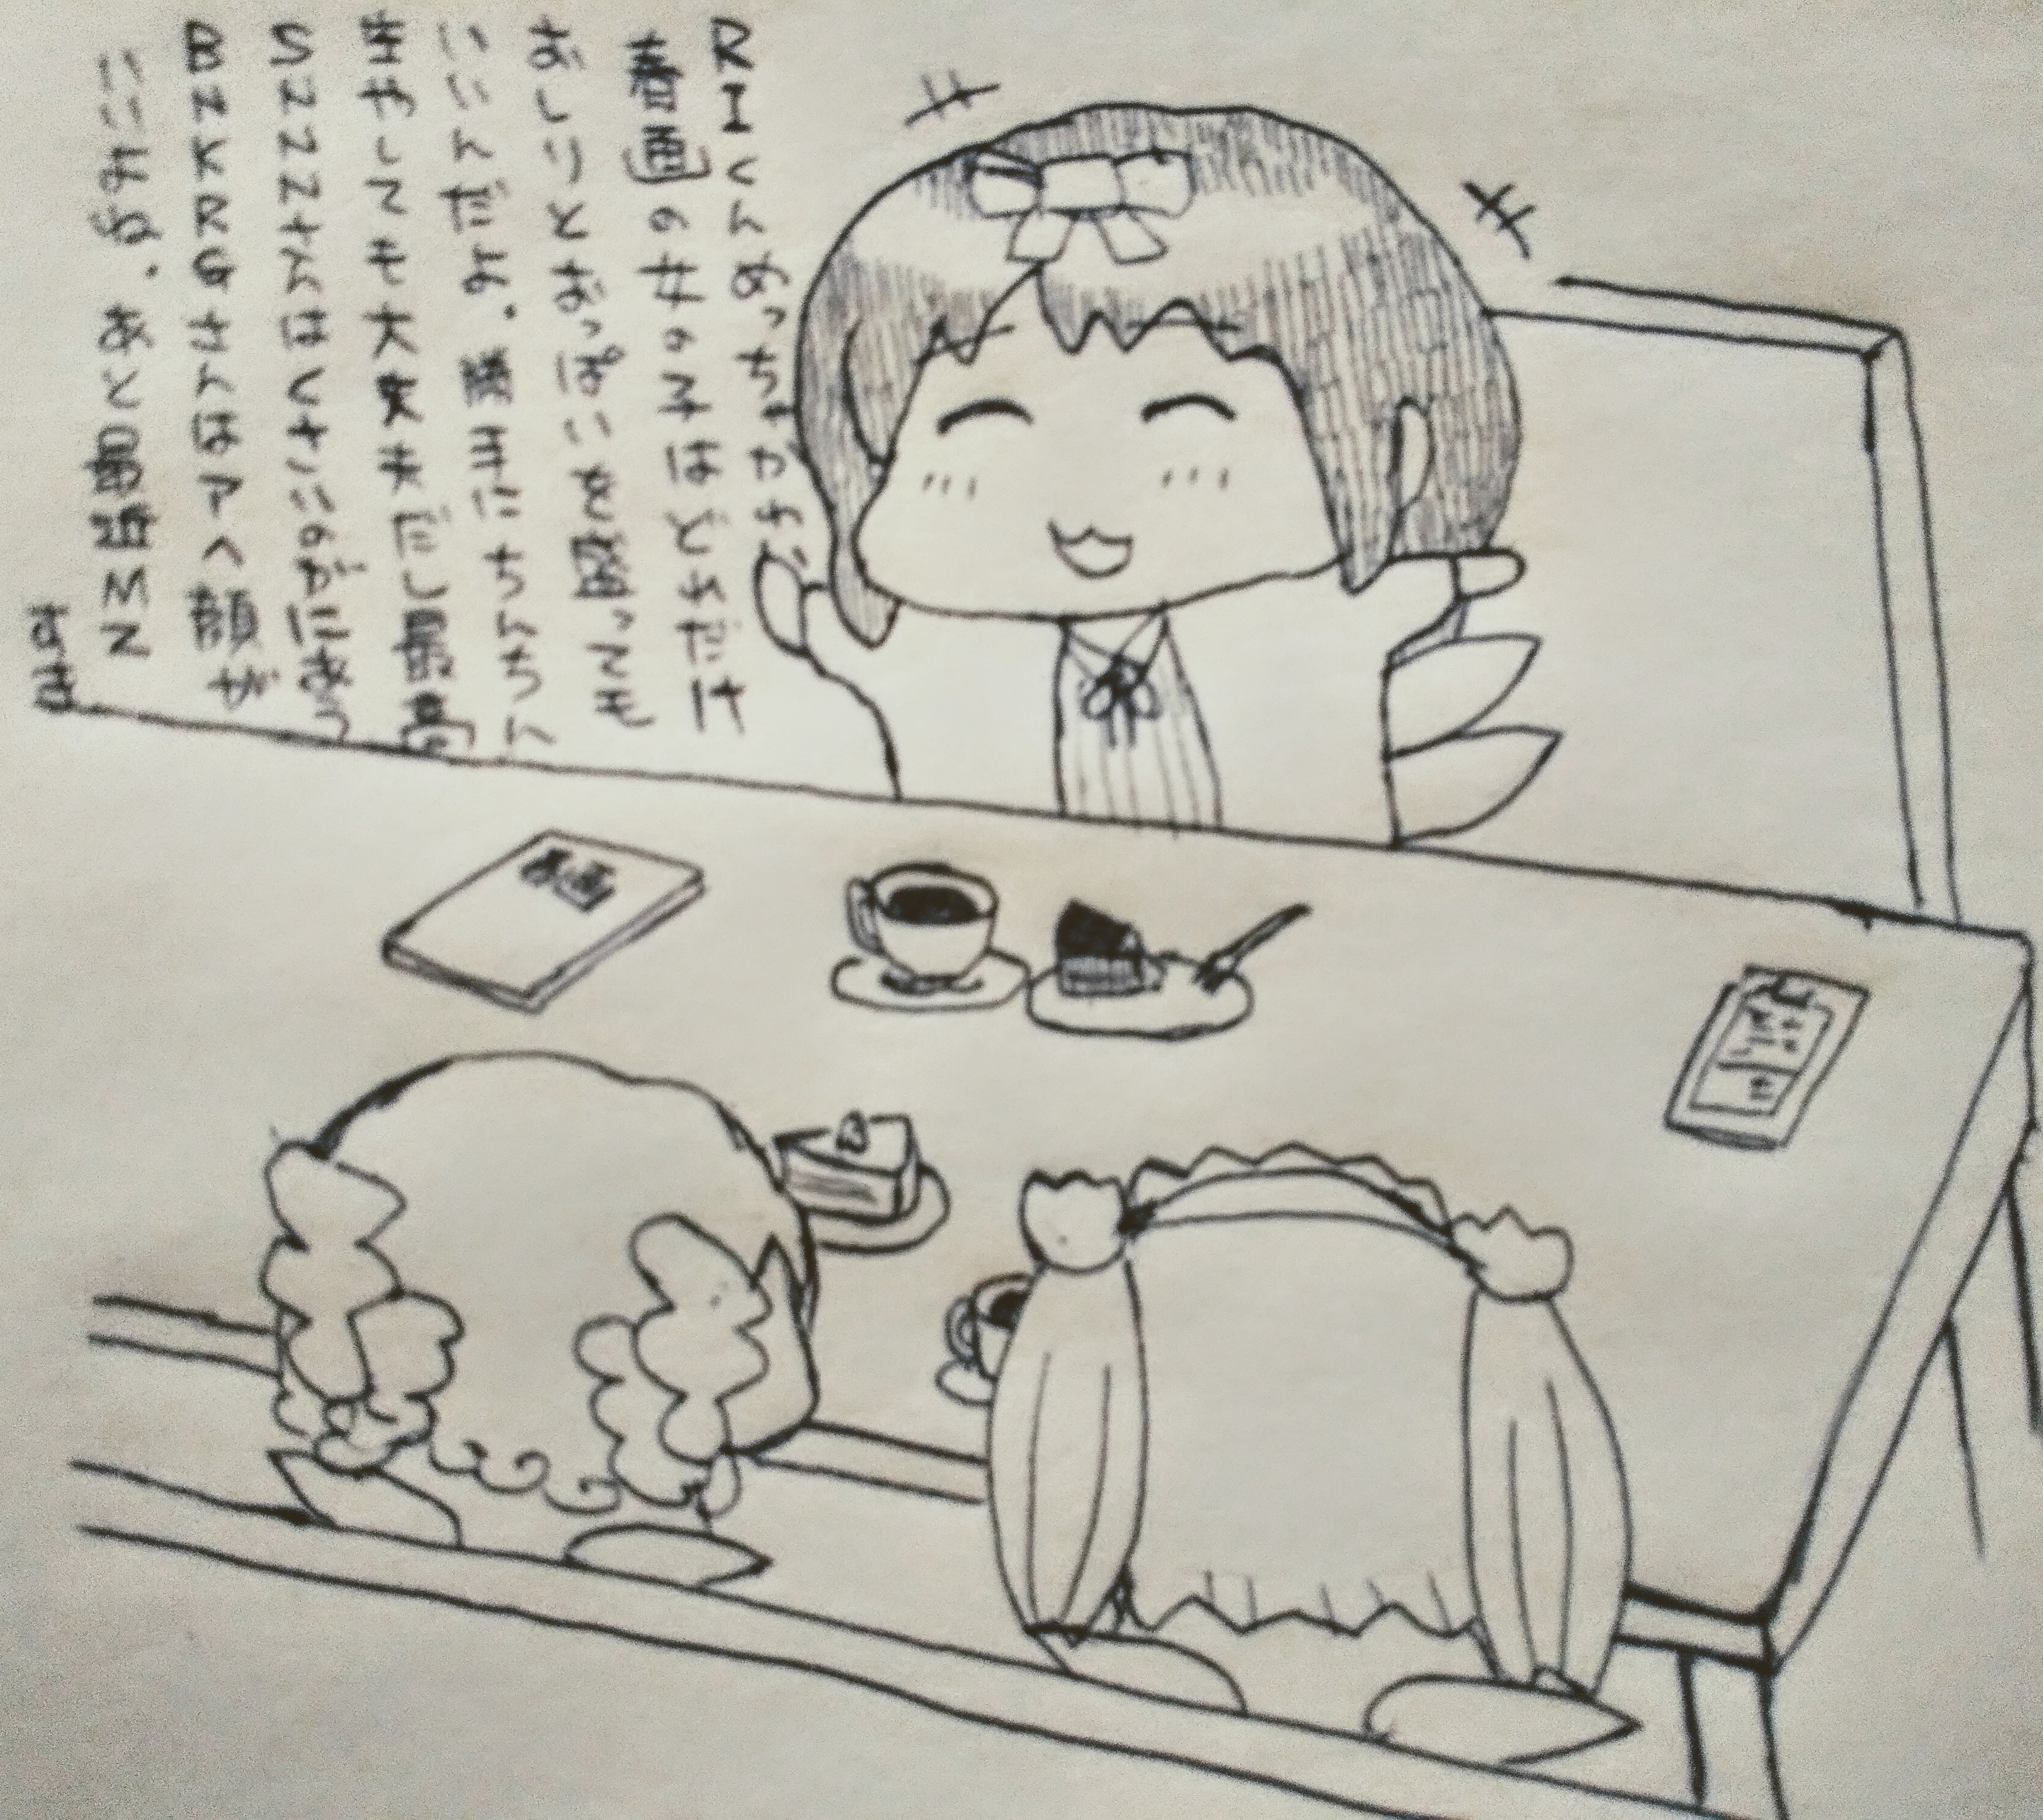 RIくんめっちゃかわ
春画の女の子はどれだけ
おしりとおっぱいを盛っても
いいんだよ。勝手にちんちん
生やしても大丈夫だし最高
SZZZさんはくさいのがにあう
BNKRGさんはアヘ顔が
いいよね。あと最近MZ
すき
春画